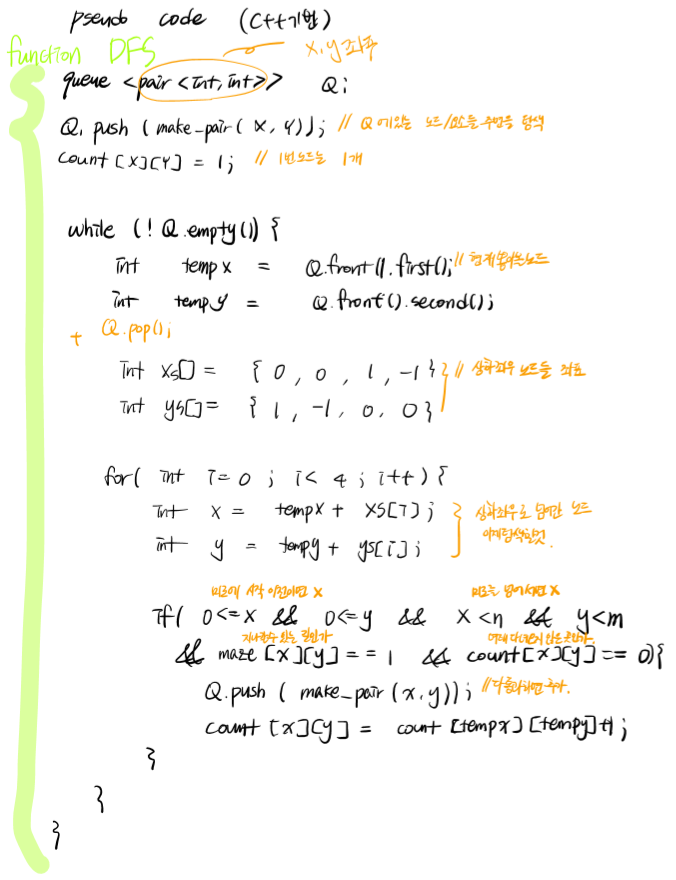 pseudo code (C++기반)
function DFS
x, y 좌표
queue <pair <int, int>> Q;
Q. push (make-pair( x, y)); // Q에있는 노드/요소들 주변을 탐색
count [x][y] = 1; // 1번노드는 1개
while (! Q.empty()) {
int tempx = Q.front().first(); // 현재 노드
int tempy = Q.front().second();
+ Q.pop();
int xs[] = { 0, 0, 1, -1 } // 상하좌우 노드들 좌표
int ys[] = { 1, -1, 0, 0 }
for( int i=0 ; i< 4 ; i++ ) {
int x = tempx + xs[i]; 상하좌우로 넘어간 노드
int y = tempy + ys[i]; 이제탐색할것.
미로에 시작 이전이면 x 미로를 넘어서면 x
if( 0<=x && 0<=y && x<n && y<m
지나갈수 있는 길인가
&& maze [x][y] == 1 && count[x][y] == 0){
Q.push ( make-pair (x, y)); //
count [x][y] = count [tempx][tempy]+1;
}
}
}